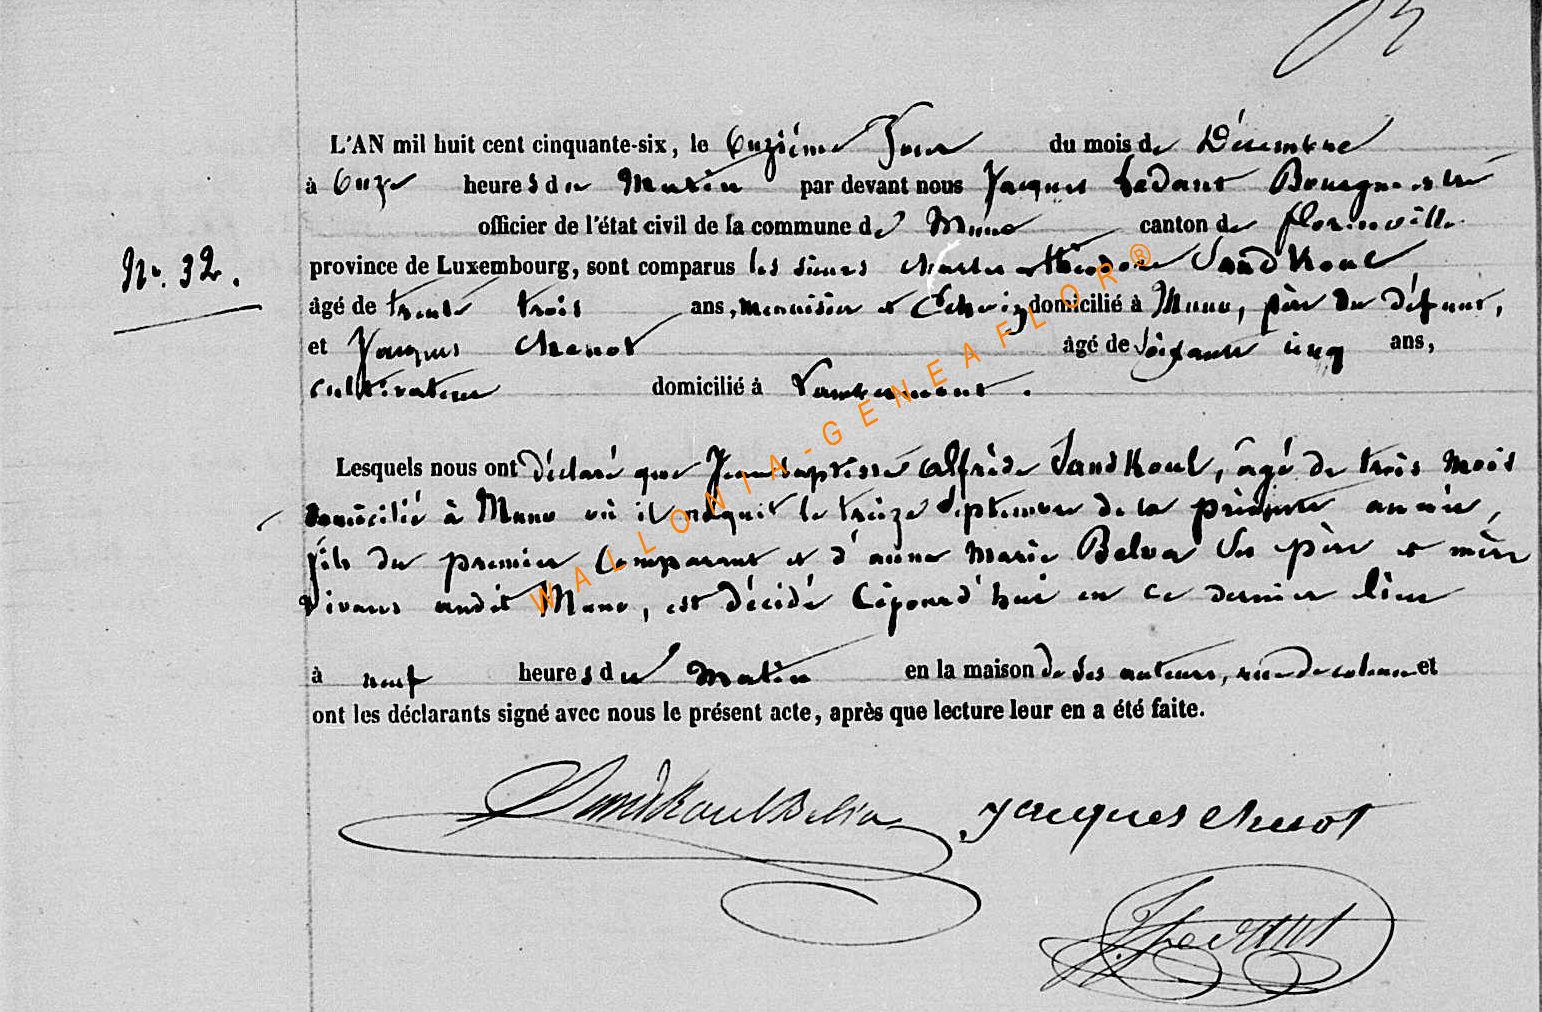 L'AN mil huit cent cinquante-six, le Onzième Jour du mois de Décembre
à Onze heures du Matin par devant nous Jacques Ledant Bourgmestre
officier de l'état civil de la commune de Muno canton de florenville
N°. 32.
province de Luxembourg, sont comparus les sieurs charles théodore Sandkoul
âgé de trente trois ans, menuisier et Echevin domicilié à Muno, père du défunt,
et Jacques Chenot âgé de Soixante cinq ans,
cultivateur domicilié à Lambermont.
Lesquels nous ont déclaré que Jean baptiste alfrède Sandkoul, âgé de trois mois
domicilié à Muno où il nâquit le treize Septembre de la présente année,
fils du premier Comparant et d'anne Marie Belva Ses père et mère
vivans audit Muno, est décédé Cejourd'hui en ce dernier lieu
à neuf heures du Matin en la maison de Ses auteurs, et
ont les déclarants signé avec nous le présent acte, après que lecture leur en a été faite.
Sandkoul Belva Jacques chenot
J Ledant
WALLONIA-GENEAFLOR®